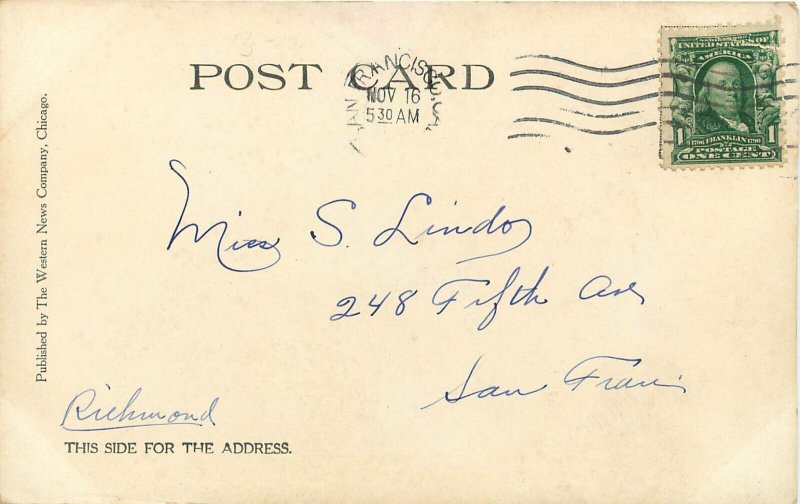 POST CARD
SAN FRANCISCO, CAL.
NOV 16
5 30 AM
UNITED STATES OF
AMERICA
1 1
1706 FRANKLIN 1790
POSTAGE
ONE CENT
Published by The Western News Company, Chicago.
Miss S. Lindo
248 Fifth Ave
San Fran
Richmond
THIS SIDE FOR THE ADDRESS.